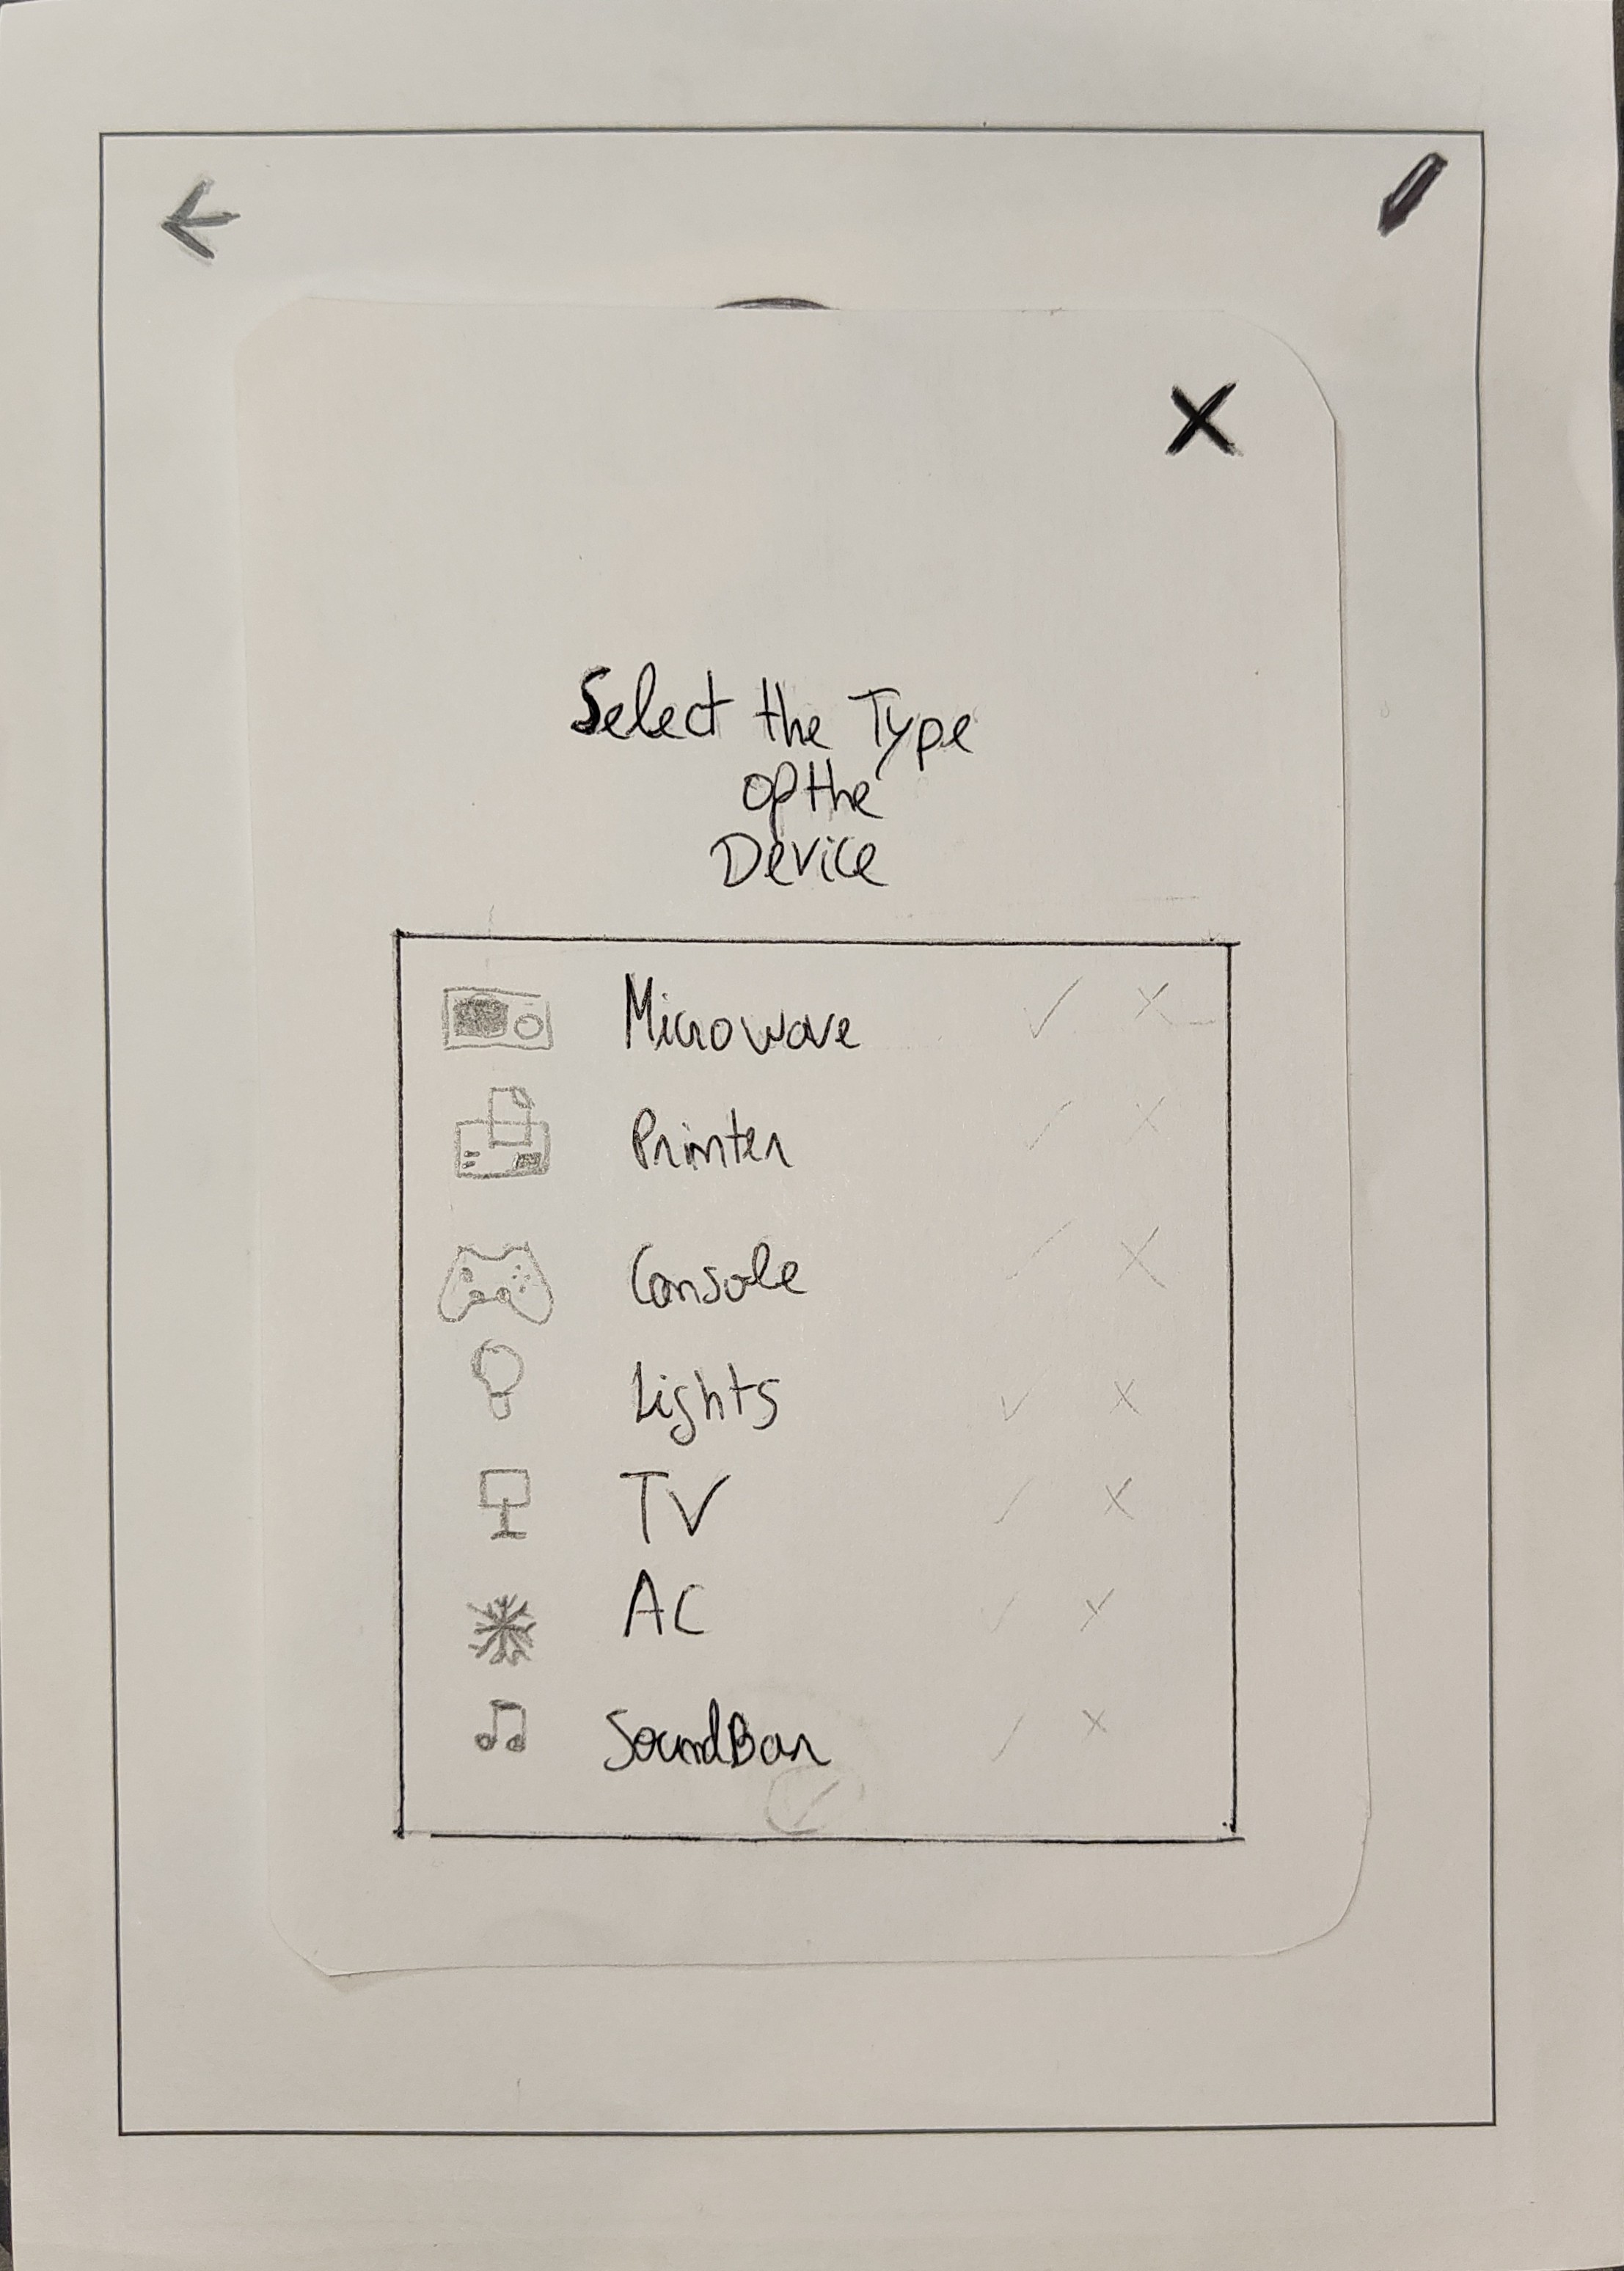 Select the Type
of the
Device
Microwave
Printer
Console
Lights
TV
AC
SoundBar